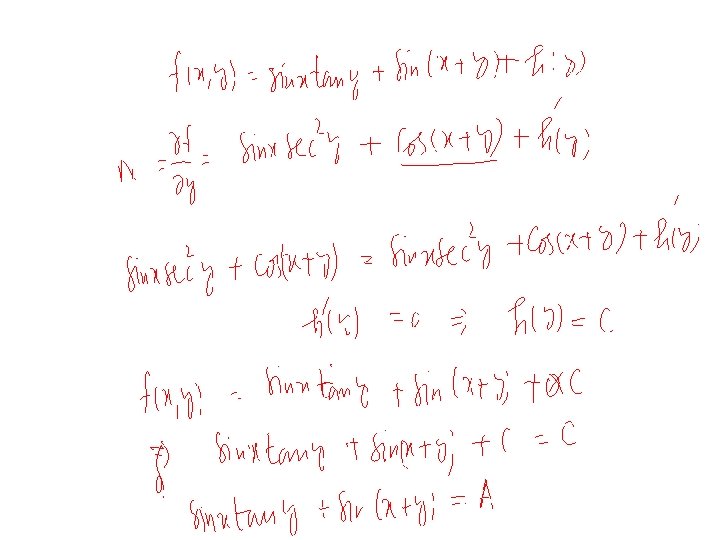 f(x,y) = sinx tany + sin(x+y) + h(y)
N = ∂f/∂y = sinx sec²y + cos(x+y) + h'(y)
sinx sec²y + cos(x+y) = sinx sec²y + cos(x+y) + h'(y)
h'(y) = 0 ⇒ h(y) = C.
f(x,y) = sinx tany + sin(x+y) + C
⇒ sinx tany + sin(x+y) + C = C
sinx tany + sin(x+y) = A